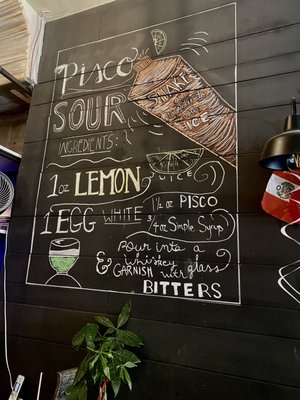 Pisco
SOUR
INGREDIENTS:
ICE
1 oz LEMON JUICE
1 EGG WHITE
1 1/2 oz PISCO
3/4 oz Simple Syrup
Pour into a
Whiskey glass
& GARNISH with
BITTERS